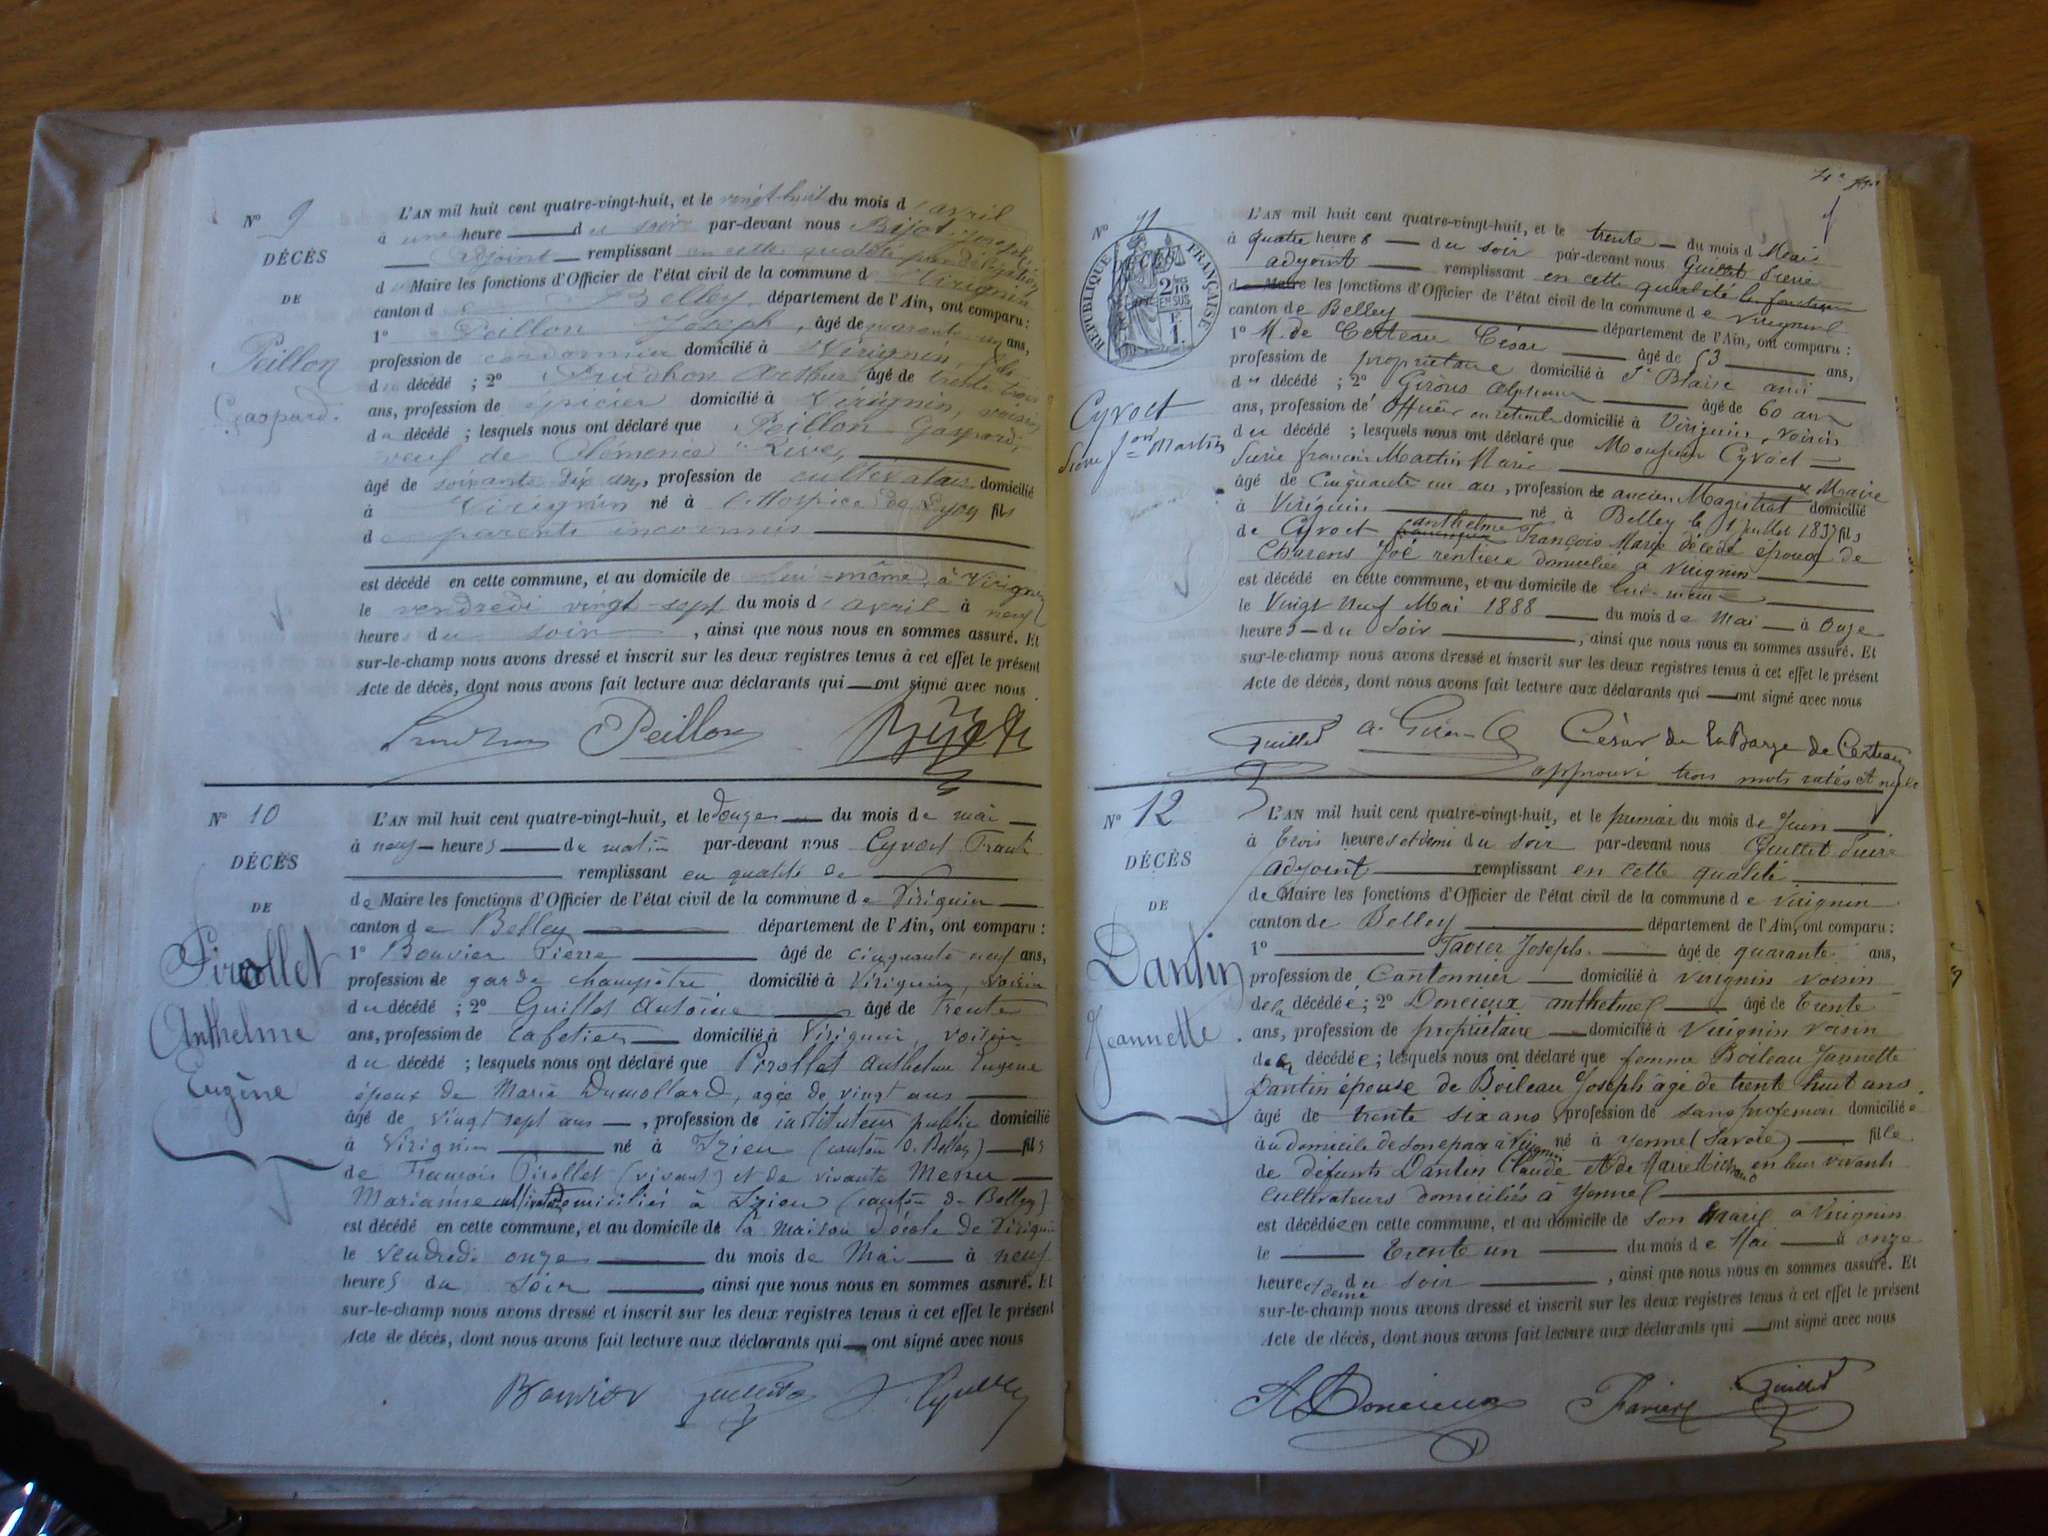 N° 9
DÉCÈS
DE
Peillon
Gaspard.
L'AN mil huit cent quatre-vingt-huit, et le vingt-huit du mois d'avril
à une heure du soir par-devant nous Bijot Joseph
adjoint remplissant en cette qualité par délégation
du Maire les fonctions d'Officier de l'état civil de la commune de Virignin
canton de Belley, département de l'Ain, ont comparu :
1° Peillon Joseph, âgé de quarante un ans,
profession de cordonnier domicilié à Virignin, fils
du décédé ; 2° Prudhon Arthur âgé de trente trois
ans, profession de épicier domicilié à Virignin, voisin
du décédé ; lesquels nous ont déclaré que Peillon Gaspard,
veuf de Clémence Rive,
âgé de soixante dix ans, profession de cultivateur domicilié
à Virignin né à l'Hospice de Lyon fils
de parents inconnus
est décédé en cette commune, et au domicile de lui-même à Virignin
le vendredi vingt-sept du mois d'avril à neuf
heures du soir, ainsi que nous nous en sommes assuré. Et
sur-le-champ nous avons dressé et inscrit sur les deux registres tenus à cet effet le présent
Acte de décès, dont nous avons fait lecture aux déclarants qui ont signé avec nous
Peillon Bijot
N° 10
DÉCÈS
DE
Pirollet
Anthelme
Eugène
L'AN mil huit cent quatre-vingt-huit, et le douze du mois de mai
à neuf heures du matin par-devant nous Cyvoct Frank
remplissant en qualité de
de Maire les fonctions d'Officier de l'état civil de la commune de Virignin
canton de Belley département de l'Ain, ont comparu :
1° Bouvier Pierre âgé de cinquante neuf ans,
profession de garde champêtre domicilié à Virignin, voisin
du décédé ; 2° Guillet Antoine âgé de trente
ans, profession de cafetier domicilié à Virignin, voisin
du décédé ; lesquels nous ont déclaré que Pirollet Anthelme Eugène
époux de Marie Dumollard, agée de vingt ans
âgé de vingt sept ans, profession de instituteur public domicilié
à Virignin né à Izieu (canton de Belley) fils
de François Pirollet (vivant) et de vivante Menu
Marianne cultivateurs domiciliés à Izieu (canton de Belley)
est décédé en cette commune, et au domicile de la maison d'école de Virignin
le vendredi onze du mois de Mai à neuf
heures du soir, ainsi que nous nous en sommes assuré. Et
sur-le-champ nous avons dressé et inscrit sur les deux registres tenus à cet effet le présent
Acte de décès, dont nous avons fait lecture aux déclarants qui ont signé avec nous
Bouvier
N° 11
DÉCÈS
RÉPUBLIQUE FRANÇAISE
2/10 EN SUS
1 F.
Cyvoct
Martin
L'AN mil huit cent quatre-vingt-huit, et le trente du mois de Mai
à quatre heures du soir par-devant nous Guillet
adjoint remplissant en cette qualité les fonctions
de Maire les fonctions d'Officier de l'état civil de la commune de Virignin
canton de Belley département de l'Ain, ont comparu :
1° M. de Certeau César âgé de 53 ans,
profession de propriétaire domicilié à St Blaise ami
du décédé ; 2° Alphonse âgé de 60 ans
ans, profession de officier en retraite domicilié à Virignin, voisin
du décédé ; lesquels nous ont déclaré que Monsieur Cyvoct
François Martin Marie
âgé de Cinquante un an, profession de ancien Magistrat Maire domicilié
à Virignin né à Belley le 1 juillet 1837 fils
de Cyvoct anthelme François Marie décédé époux de
Zoé rentière domiciliée à Virignin
est décédé en cette commune, et au domicile de lui-même
le Vingt Neuf Mai 1888 du mois de Mai à Onze
heures du Soir, ainsi que nous nous en sommes assuré. Et
sur-le-champ nous avons dressé et inscrit sur les deux registres tenus à cet effet le présent
Acte de décès, dont nous avons fait lecture aux déclarants qui ont signé avec nous
Guillet César de la Barge de Certeau
approuvé trois mots ratés et nuls
N° 12
DÉCÈS
DE
Dantin
Jeannette.
L'AN mil huit cent quatre-vingt-huit, et le premier du mois de Juin
à trois heures et demi du soir par-devant nous Guillet
adjoint remplissant en cette qualité
de Maire les fonctions d'Officier de l'état civil de la commune de Virignin
canton de Belley département de l'Ain, ont comparu :
1° Favier Joseph âgé de quarante ans,
profession de Cantonnier domicilié à Virignin voisin
de la décédée ; 2° Doncieux anthelme âgé de trente
ans, profession de propriétaire domicilié à Virignin voisin
de la décédée ; lesquels nous ont déclaré que femme Boileau Jannette
Dantin épouse de Boileau Joseph âgé de trente huit ans
âgé de trente six ans, profession de sans profession domiciliée
au domicile de son epoux à Virignin né à Yenne (Savoie) fille
de défunts Dantin Claude et de Marie Michaud en leur vivant
cultivateurs domiciliés à Yenne
est décédée en cette commune, et au domicile de son Marie à Virignin
le trente un du mois de Mai à onze
heures et demie du soir, ainsi que nous nous en sommes assuré. Et
sur-le-champ nous avons dressé et inscrit sur les deux registres tenus à cet effet le présent
Acte de décès, dont nous avons fait lecture aux déclarants qui ont signé avec nous
A Doncieux Favier Guillet